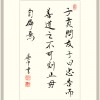 子貢問友子曰忠告而
善道之不可則止毋
自辱焉